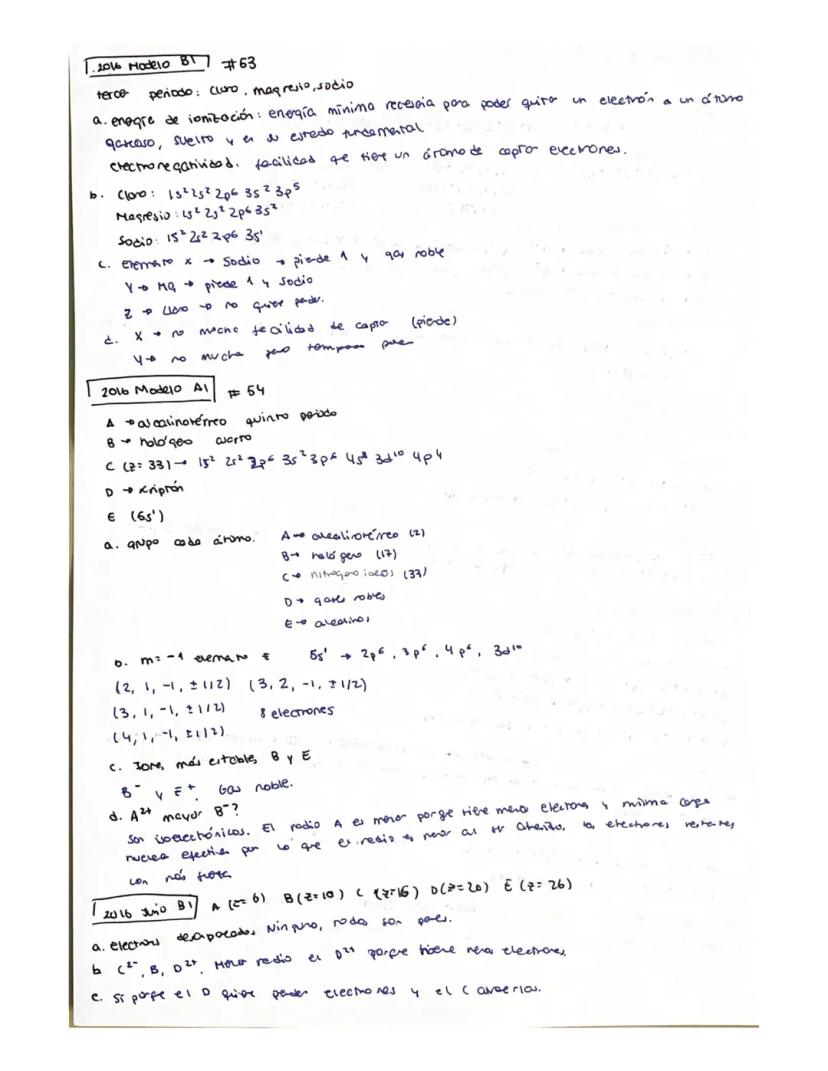 2016 Modelo B1 #63
tercer periodo: cloro, magnesio, sodio
a. energía de ionización: energía mínima necesaria para poder quitar un electrón a un átomo
gaseoso, suelto y en su estado fundamental
electronegatividad: facilidad que tiene un átomo de captar electrones.
b. Cloro: 1s² 2s² 2p6 3s² 3p5
Magnesio: 1s² 2s² 2p6 3s²
Sodio: 1s² 2s² 2p6 3s¹
c. elemento x → Sodio → pierde 1 y gas noble
Y → Mg → pierde 1 y sodio
Z → cloro → no quiere perder.
d. X → no mucha facilidad de captar (pierde)
Y → no mucha pero tampoco
2016 Modelo A1 # 54
A → alcalinotérreo quinto periodo
B → halógeno cuarto
C (z= 33) → 1s² 2s² 2p6 3s² 3p6 4s 3d10 4p4
D → kriptón
E (5s¹)
a. grupo cada átomo. A → alcalinotérreo (2)
B → halógeno (17)
C → nitrogenoideos
D → gases nobles
E → alcalinos
b. m= -1 elemento E 5s¹ → 2p6, 3p6, 4p6, 3d10
(2, 1, -1, ±1/2) (3, 2, -1, ±1/2)
(3, 1, -1, ±1/2) 8 electrones
(4, 1, -1, ±1/2)
c. Iones más estables B y E
B⁻ y E⁺ Gas noble.
d. A²⁺ mayor B⁻?
Son isoelectrónicos. El radio A es menor porqe tiene menos electrons y misma carga
nuclear efectiva por lo que el radio es menor al los electrones
con más fuerza
2016 Junio B1 A (z= 6) B (z=10) C (z=16) D (z=20) E (z= 26)
a. electrons desapareados Ninguno, todos son pares.
b C²⁻, B, D²⁺. Menor radio es D²⁺ porqe tiene menos electrones.
c. Si porqe el D quiere perder electrones y el C cogerlos.